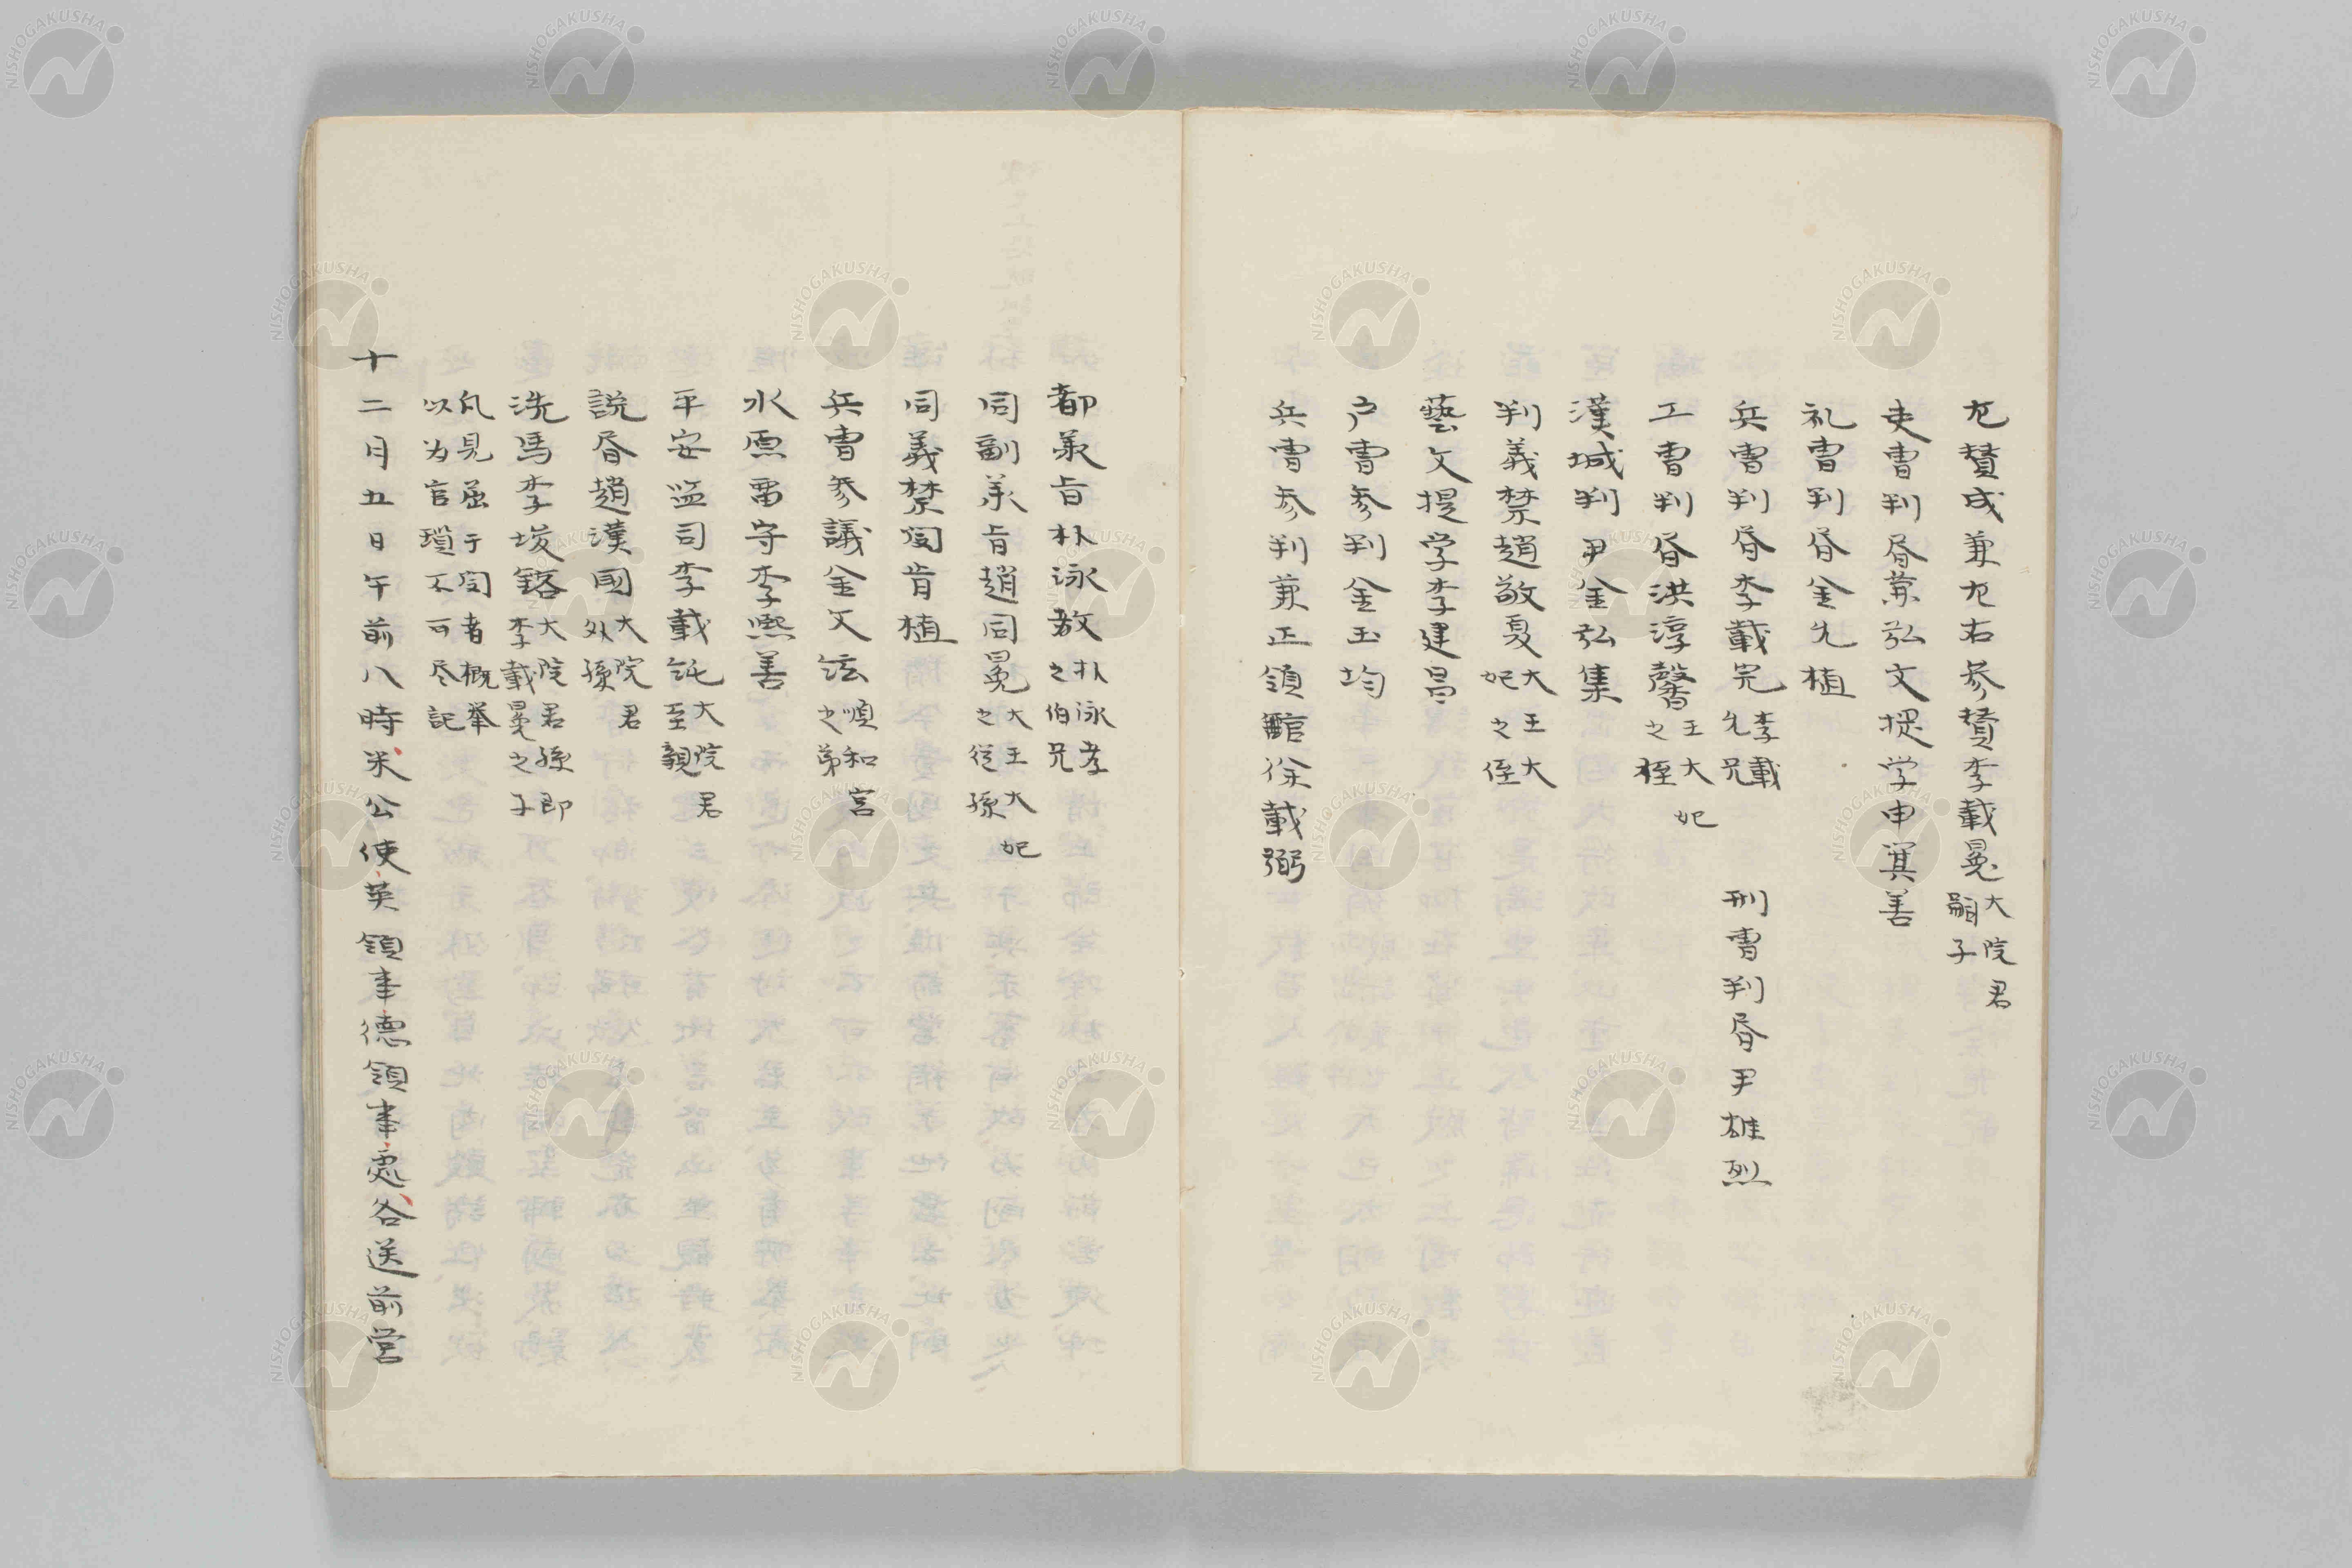 尤賛成兼尤右参賛李載冕大院君嗣子
吏曹判㫺兼弘文提学申箕善
礼曹判㫺金允植
兵曹判㫺李載完李載允兄 刑曹判㫺尹雄烈
工曹判㫺洪淳馨王大妃之姪
漢城判尹金弘集
判義禁趙敬夏大王大妃之侄
藝文提学李建昌
户曹参判金玉均
兵曹参判兼正領官徐載弼
都承旨朴泳教朴泳孝之伯兄
同副承旨趙同冕大王大妃之従孫
同義禁閔肯植
兵曹参議金文鉉順和宮之弟
水原畱守李熙善
平安監司李載純大院君至親
説㫺趙漢國大院君外孫
洗馬李埈鎔大院君孫即李載冕之子
凡見屈于閔者概挙以为官瑣不可尽記
十二月五日午前八時米公使英領事德領事處各送前営
NISHOGAKUSHA